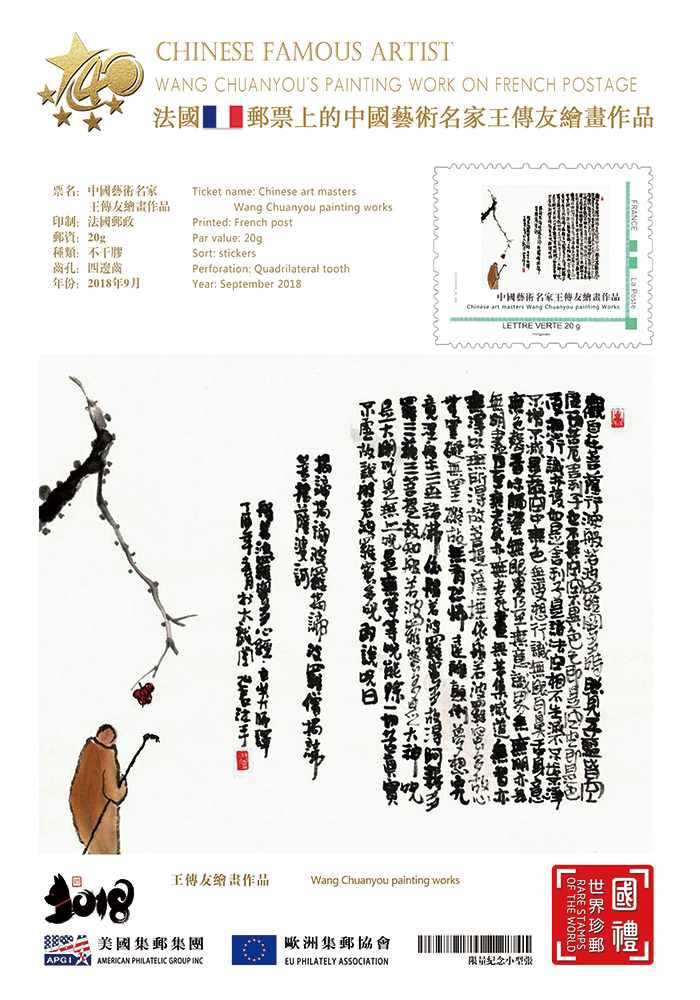 CHINESE FAMOUS ARTIST
WANG CHUANYOU'S PAINTING WORK ON FRENCH POSTAGE
法國郵票上的中國藝術名家王傳友繪畫作品
票名：中國藝術名家
王傳友繪畫作品
印制：法國郵政
郵資：20g
種類：不干膠
齒孔：四邊齒
年份：2018年9月
Ticket name: Chinese art masters
Wang Chuanyou painting works
Printed: French post
Par value: 20g
Sort: stickers
Perforation: Quadrilateral tooth
Year: September 2018
FRANCE
La Poste
中國藝術名家王傳友繪畫作品
Chinese art masters Wang Chuanyou painting Works
LETTRE VERTE 20 g
觀自在菩薩行深般若波羅蜜多時照見五蘊皆空
度一切苦厄舍利子色不異空空不異色色即是空空即是色
受想行識亦復如是舍利子是諸法空相不生不滅不垢不淨
不增不減是故空中無色無受想行識無眼耳鼻舌身意
無色聲香味觸法無眼界乃至無意識界無無明亦無
無明盡乃至無老死亦無老死盡無苦集滅道無智亦
無得以無所得故菩提薩埵依般若波羅蜜多故心
無罣礙無罣礙故無有恐怖遠離顛倒夢想究
竟涅槃三世諸佛依般若波羅蜜多故得阿耨多
羅三藐三菩提故知般若波羅蜜多是大神咒
是大明咒是無上咒是無等等咒能除一切苦真實
不虛故說般若波羅蜜多咒即說咒曰
揭諦揭諦波羅揭諦波羅僧揭諦
菩提薩婆訶
般若波羅蜜多心經
丁酉年
王傳友繪畫作品
Wang Chuanyou painting works
2018
APGI
美國集郵集團
AMERICAN PHILATELIC GROUP INC
歐洲集郵協會
EU PHILATELY ASSOCIATION
限量紀念小型張
國禮
世界珍郵
RARE STAMPS
OF THE WORLD